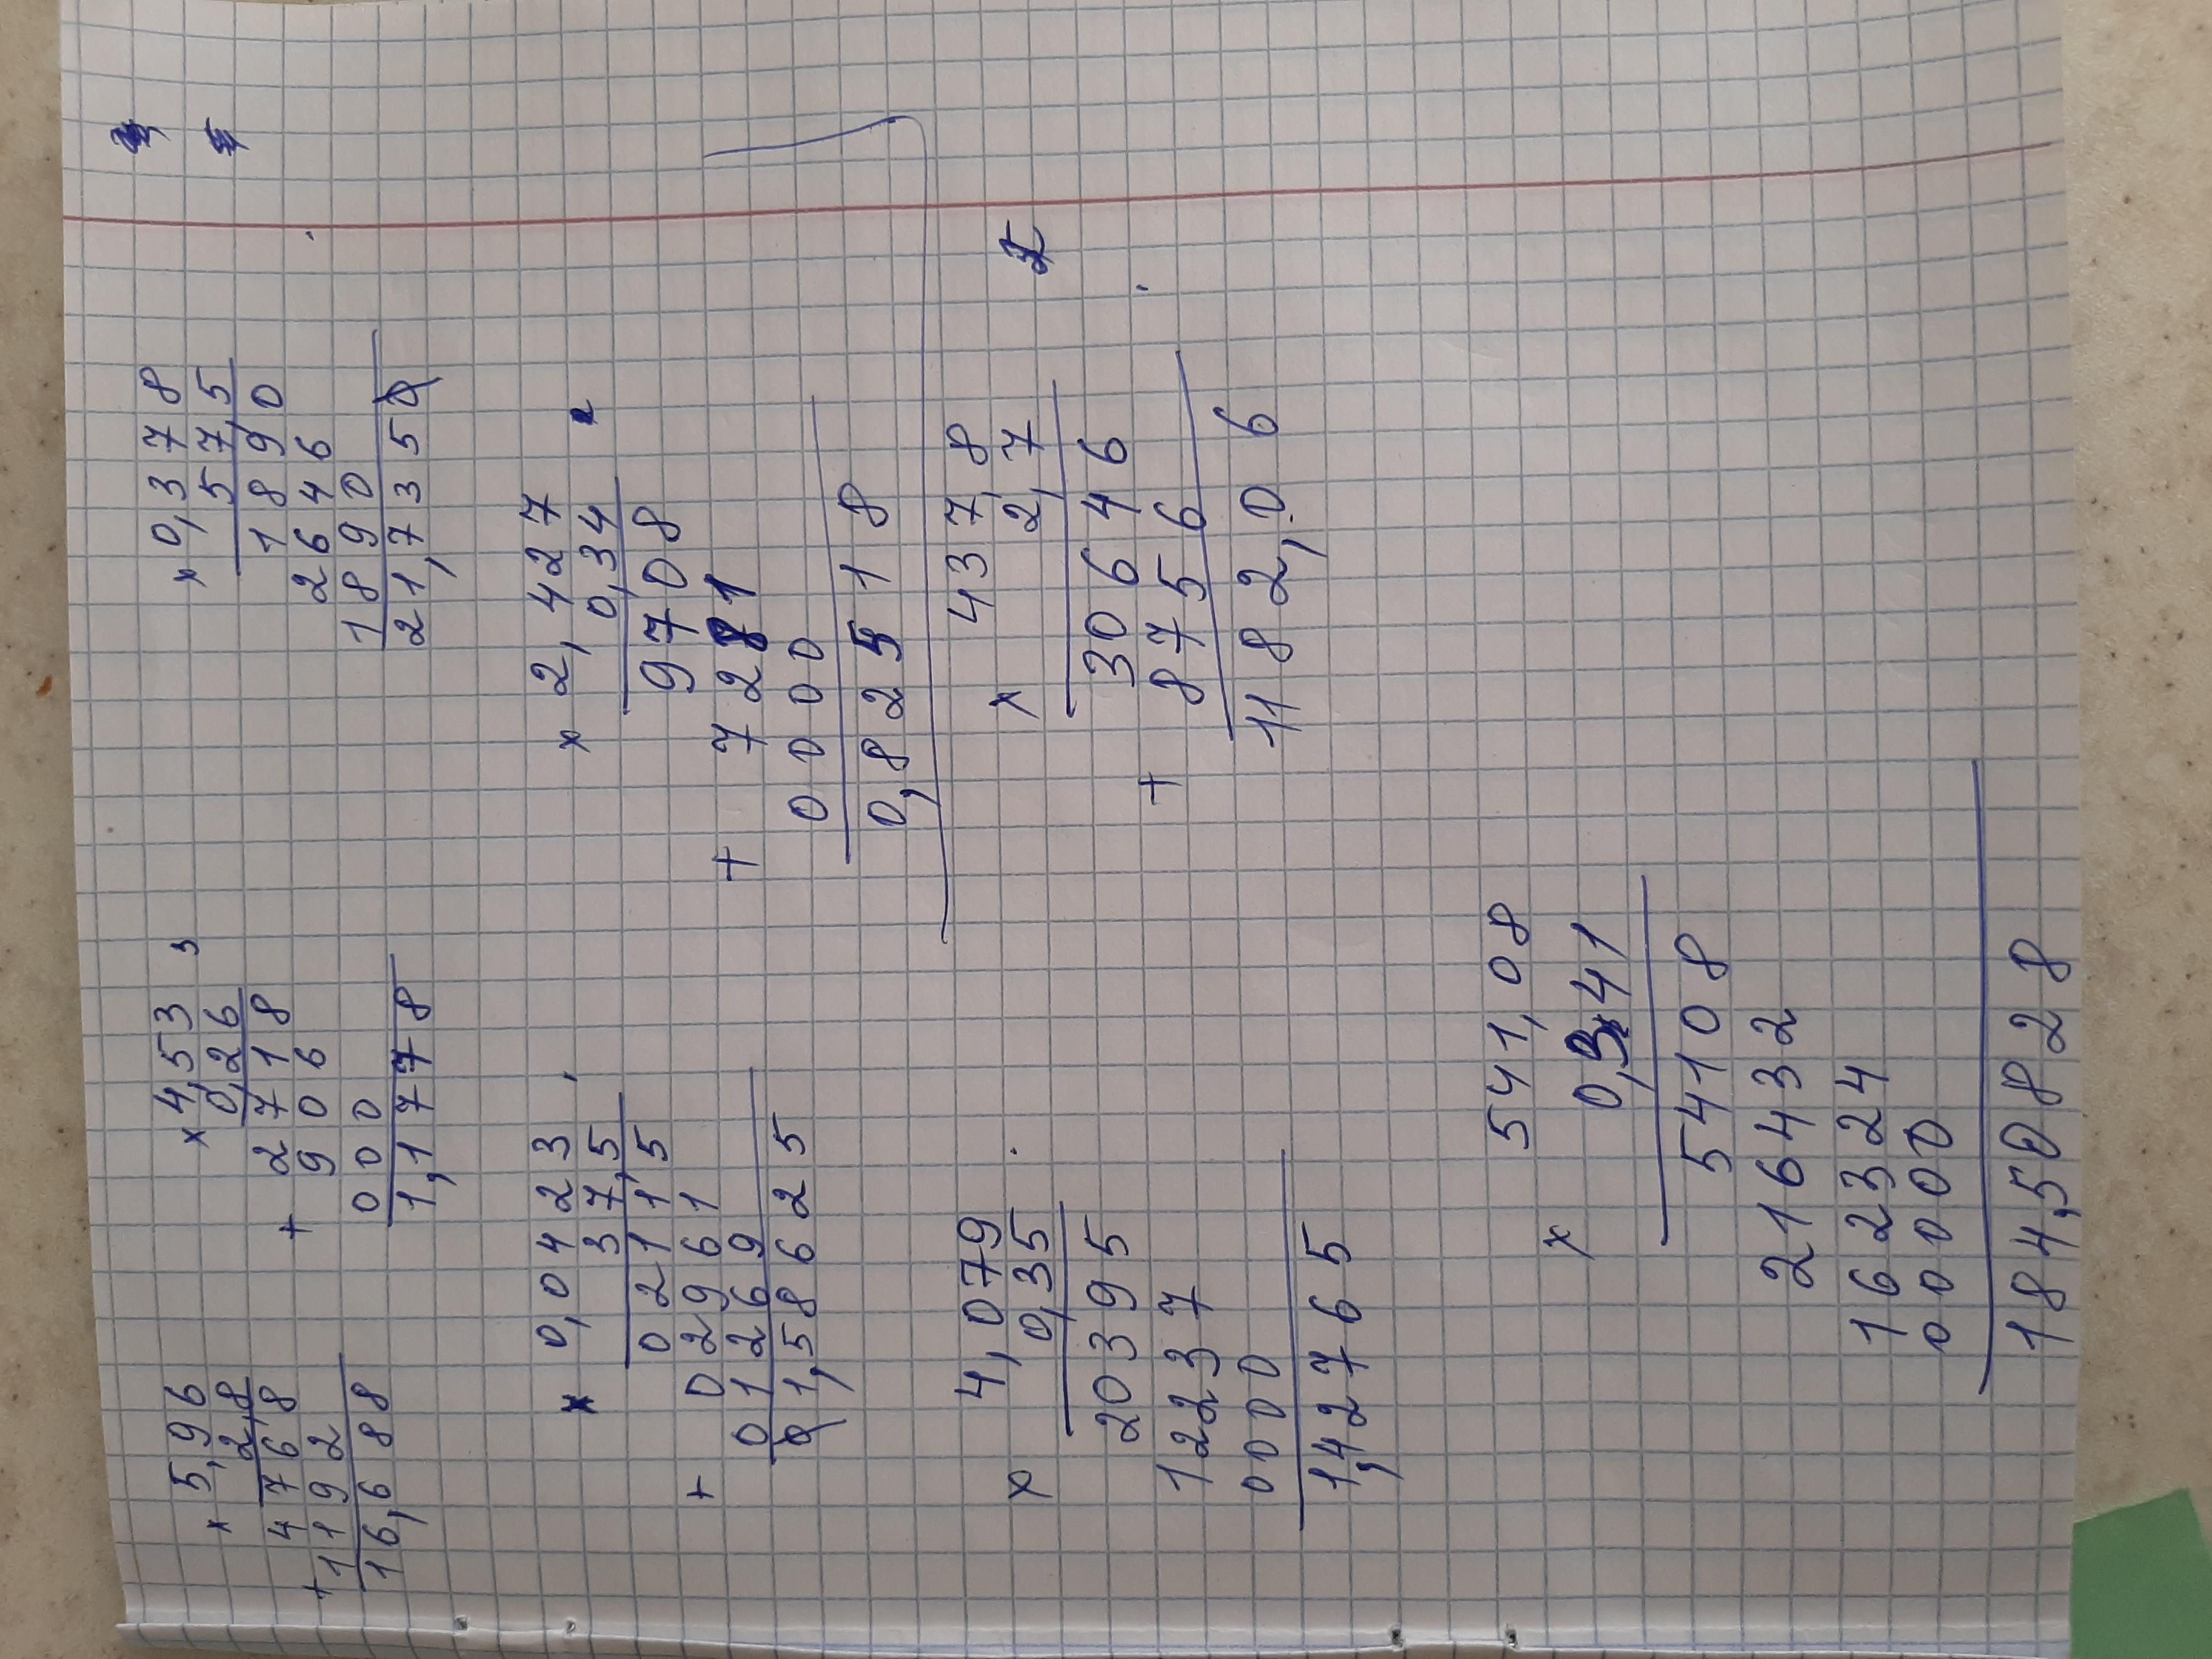 × 5,96
2,8
4768
+ 1192
16,688
× 4,53
0,26
+ 2718
906
000
1,1778
× 0,378
57,5
1890
2646
1890
21,7350
× 0,0423
37,5
02115
+ 02961
01269
01,58625
× 2,427
0,34
9708
+ 7281
0000
0,82518
× 4,079
0,35
20395
12237
0000
1,42765
× 437,8
2,7
30646
+ 8756
1182,06
× 541,08
0,341
54108
216432
162324
00000
184,50828